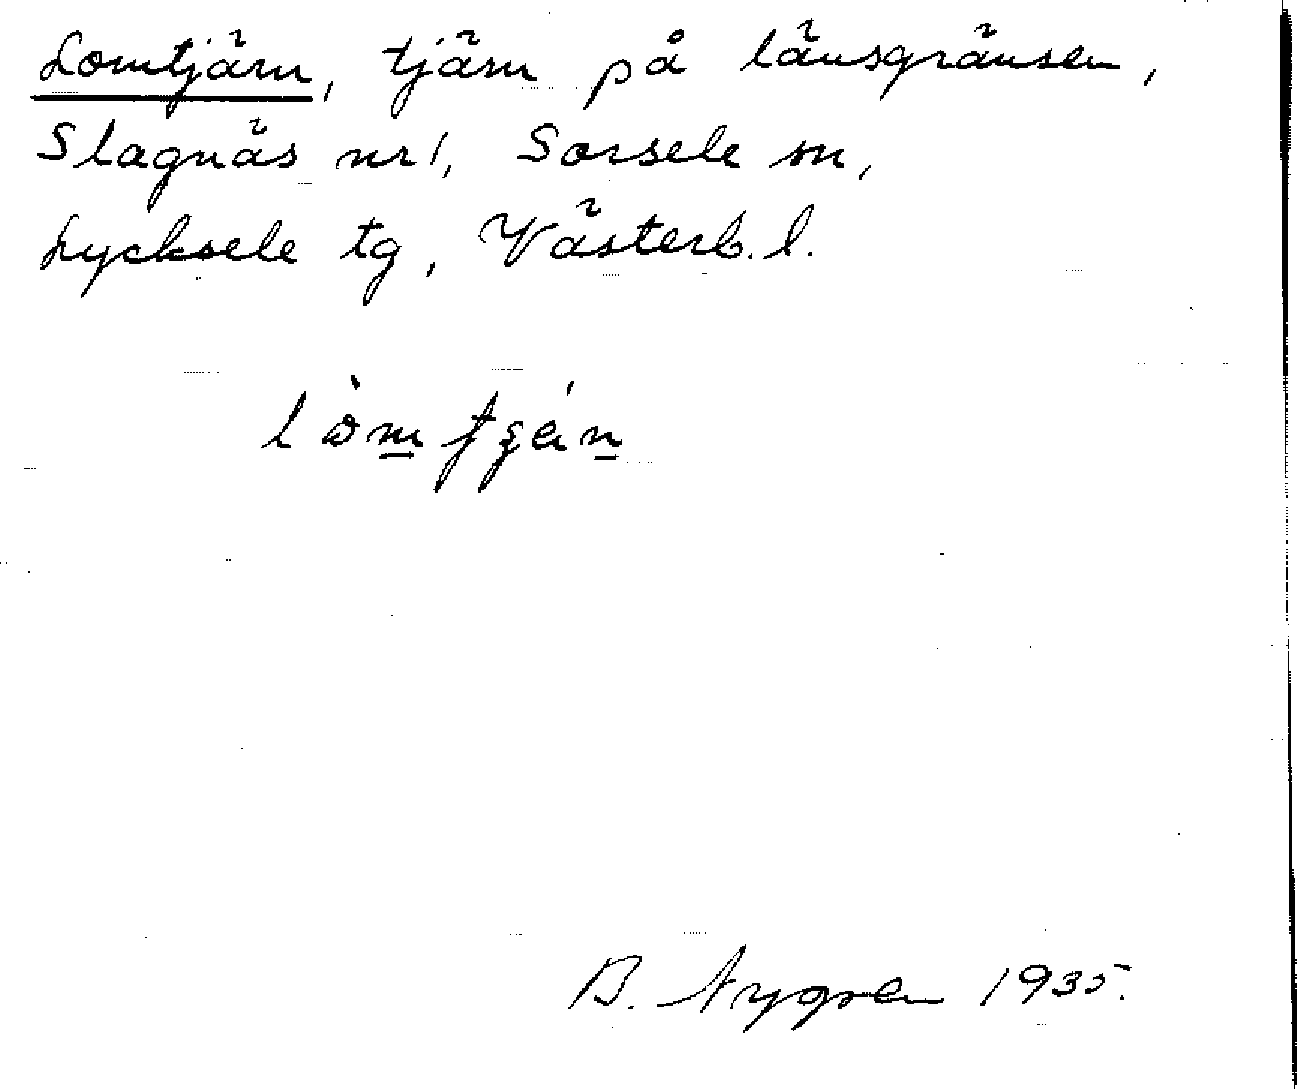 Lomtjärn, tjärn på länsgränsen,
Slagnäs nr 1, Sorsele sn,
Lycksele tg, Västerb. l.
B. Nygren 1935.